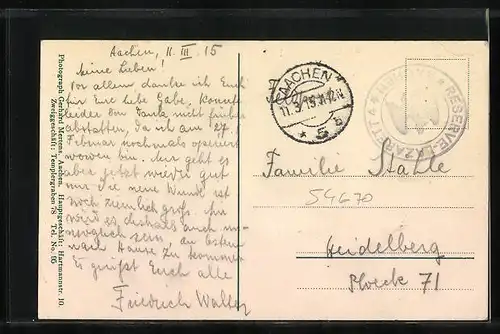 Photograph Gerhard Mertens, Aachen. Hauptgeschäft: Hartmannstr. 10.
Zweiggeschäft: Templergraben 78 Tel. No. 95
Aachen, 11. III. 15
Meine Lieben!
Vor allem danke ich Euch
für Eure liebe Gabe. Konnte
leider den Dank nicht früher
abstatten, da ich am 27.
Februar nochmals operiert
worden bin. Mir geht es
aber jetzt wieder gut
nur die neue Wunde ist
noch ziemlich groß. Ihr
wird es deshalb auch un-
möglich sein, an Ostern
nach Hause zu kommen.
Es grüßt Euch alle
Friedrich Walter
AACHEN
11.3.15.11-12.N
* 5 b
RESERVE-LAZARETT 4 * AACHEN *
Familie Stahle
54670
Heidelberg
Plöck 71